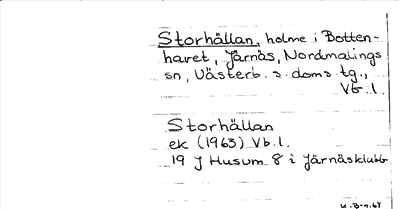 Storhällan, holme i Botten-
havet, Järnäs, Nordmalings
sn, Västerb. s. doms tg.,
Vb. l.
Storhällan
ek (1963) Vb. l.
19 J Husum 8 i Järnäsklubb